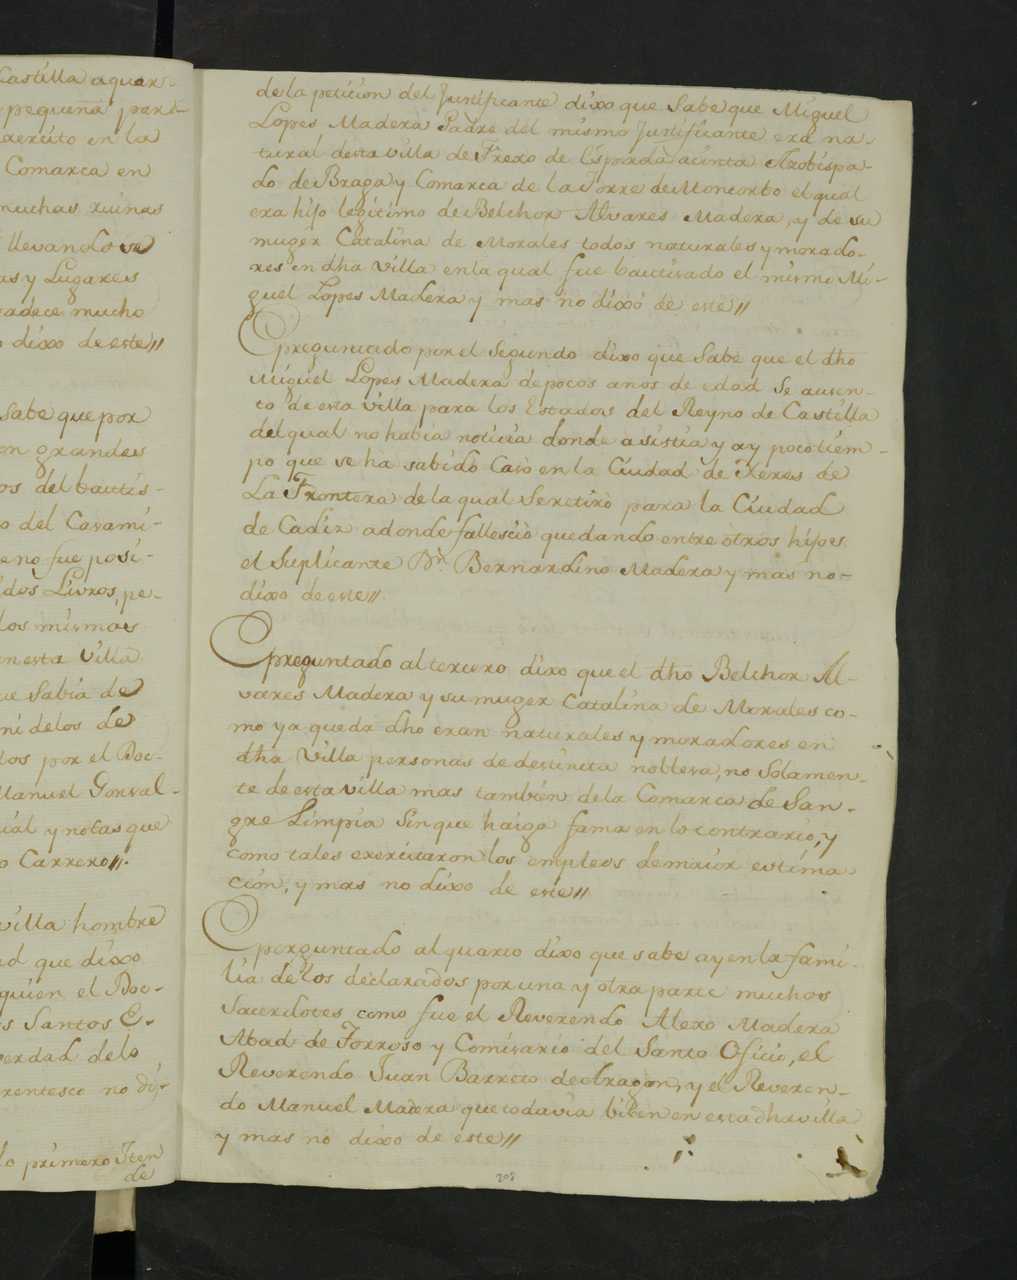 Castilla aquar-
pequeña par-
exercito en la
Comarca en
muchas ruinas
llevandose
as y Lugares
padece mucho
dixo de este//
sabe que por
on grandes
os del bautis-
o del Casami-
eno fue posi-
dos Livros, pe-
los mismos
en esta Villa
ue Sabia de
ni de los de
dos por el Doc-
Manuel Gonsal-
ial y notas que
o Carrero//.
villa hombre
ad que dixo
quien el Doc-
s Santos E-
verdad de lo
rentesco no di-
lo primero Iten
de
de la peticion del Justificante dixo que Sabe que Miguel
Lopes Madera Padre del mismo Justificante era na-
tural de esta villa de Frexo de Espada acinta Arobispa-
do de Braga y Comarca de la Torre de Moncorbo el qual
era hijo legitimo de Belchor Alvares Madera, y de su
muger Catalina de Morales todos naturales y morado-
res en dha Villa en la qual fue bautisado el mismo Mi-
guel Lopes Madera y mas no dixo de este//
Epreguntado por el Segundo dixo que Sabe que el dho
Miguel Lopes Madera de pocos anos de edad Se ausen-
to de esta Villa para los Estados del Reyno de Castilla
del qual no habia noticia donde asistia y ay poco tiem-
po que se ha sabido Caso en la Ciudad de Xeres de
La Frontera de la qual Se retirò para la Ciudad
de Cadiz adonde fallesciò quedando entre òtros hijos
el Suplicante Dn. Bernardino Madera y mas no-
dixo de este//
Epreguntado al tercero dixo que el dho Belchor Al-
vares Madera y su muger Catalina de Morales co-
mo ya queda dho eran naturales y moradores en
dha Villa personas de destinta noblesa, no Solamen-
te de esta villa mas tambien de la Comarca de San-
gre Limpia Sin que haiga fama en lo contrario, y
como tales exercitaron los empleos de maior estima
cion, y mas no dixo de este//
Eperguntado al quarto dixo que sabe ay en la fami-
lia de los declarados por una y otra parte muchos
Sacerdotes como fue el Reverendo Alexo Madera
Abad de Forroso y Comisario del Santo Oficio, el
Reverendo Juan Barreto de Aragon, y el Reveren-
do Manuel Madera que todavia biben en esta dha villa
y mas no dixo de este//
208